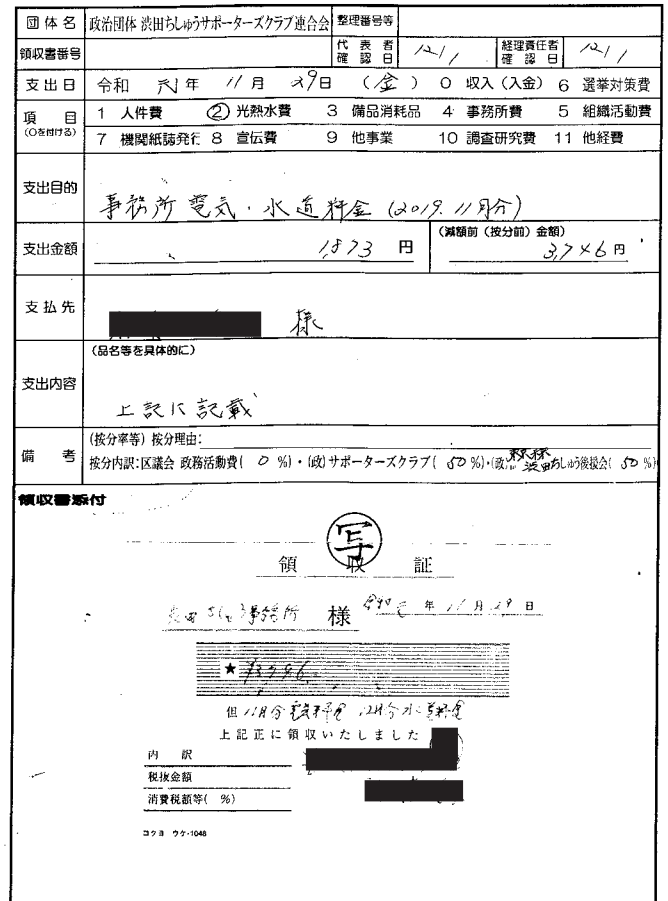 団体名 政治団体 渋田ちしゅうサポーターズクラブ連合会 整理番号等
領収書番号 代表者確認日 12/1 経理責任者確認日 12/1
支出日 令和 元年 11月 29日 (金) 0 収入(入金) 6 選挙対策費
項目 (○を付ける) 1 人件費 ② 光熱水費 3 備品消耗品 4 事務所費 5 組織活動費
7 機関紙誌発行 8 宣伝費 9 他事業 10 調査研究費 11 他経費
支出目的 事務所電気・水道料金(2019.11月分)
支出金額 1,873 円 (減額前(按分前)金額) 3,746 円
支払先 様
(品名等を具体的に)
支出内容 上記に記載
(按分率等) 按分理由:
備考 按分内訳:区議会 政務活動費( 0 %)・(政)サポーターズクラブ( 50 %)・(政) 渋田ちしゅう後援会( 50 %)
領収書添付
写
領収証
事務所 様 令和元年 11月 29日
★ ¥3746
但 11月分電気料金 12月分水道料金
上記正に領収いたしました
内訳
税抜金額
消費税額等( %)
コクヨ ウケ-1048